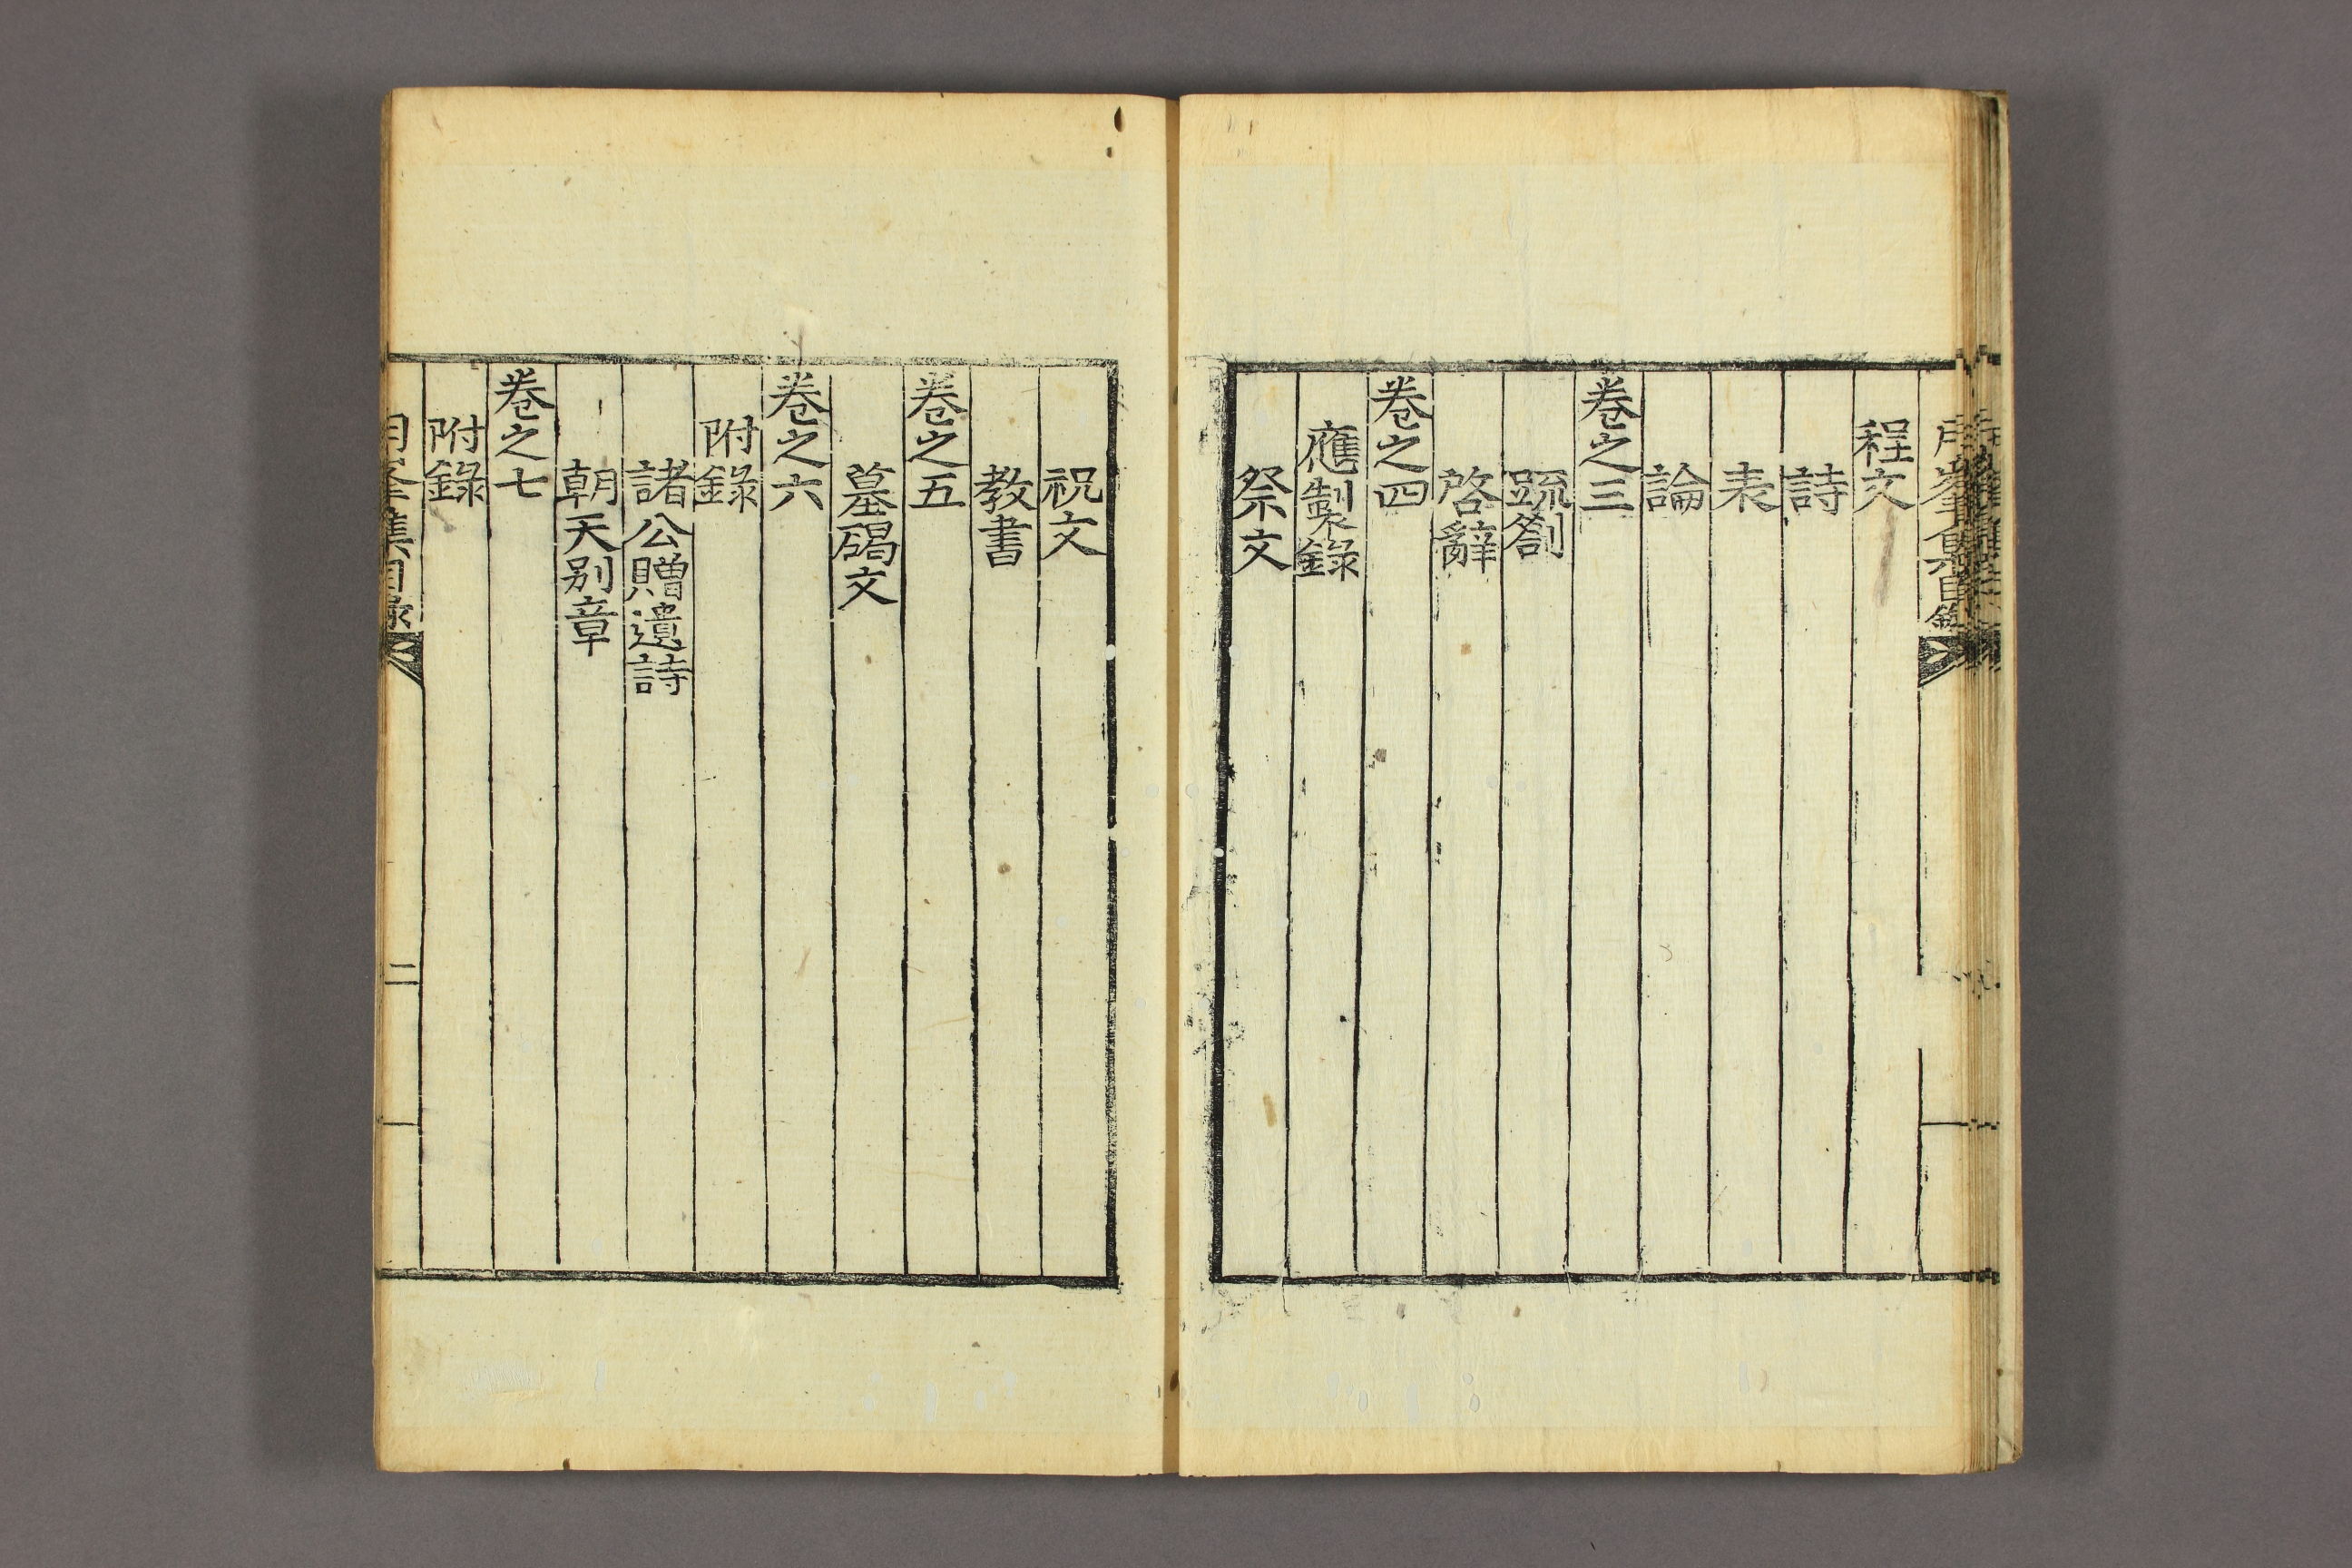 程文
詩
表
論
卷之三
疏劄
啓辭
卷之四
應製錄
祭文
祝文
教書
卷之五
墓碣文
卷之六
附錄
諸公贈遺詩
朝天別章
卷之七
附錄
集目錄
二